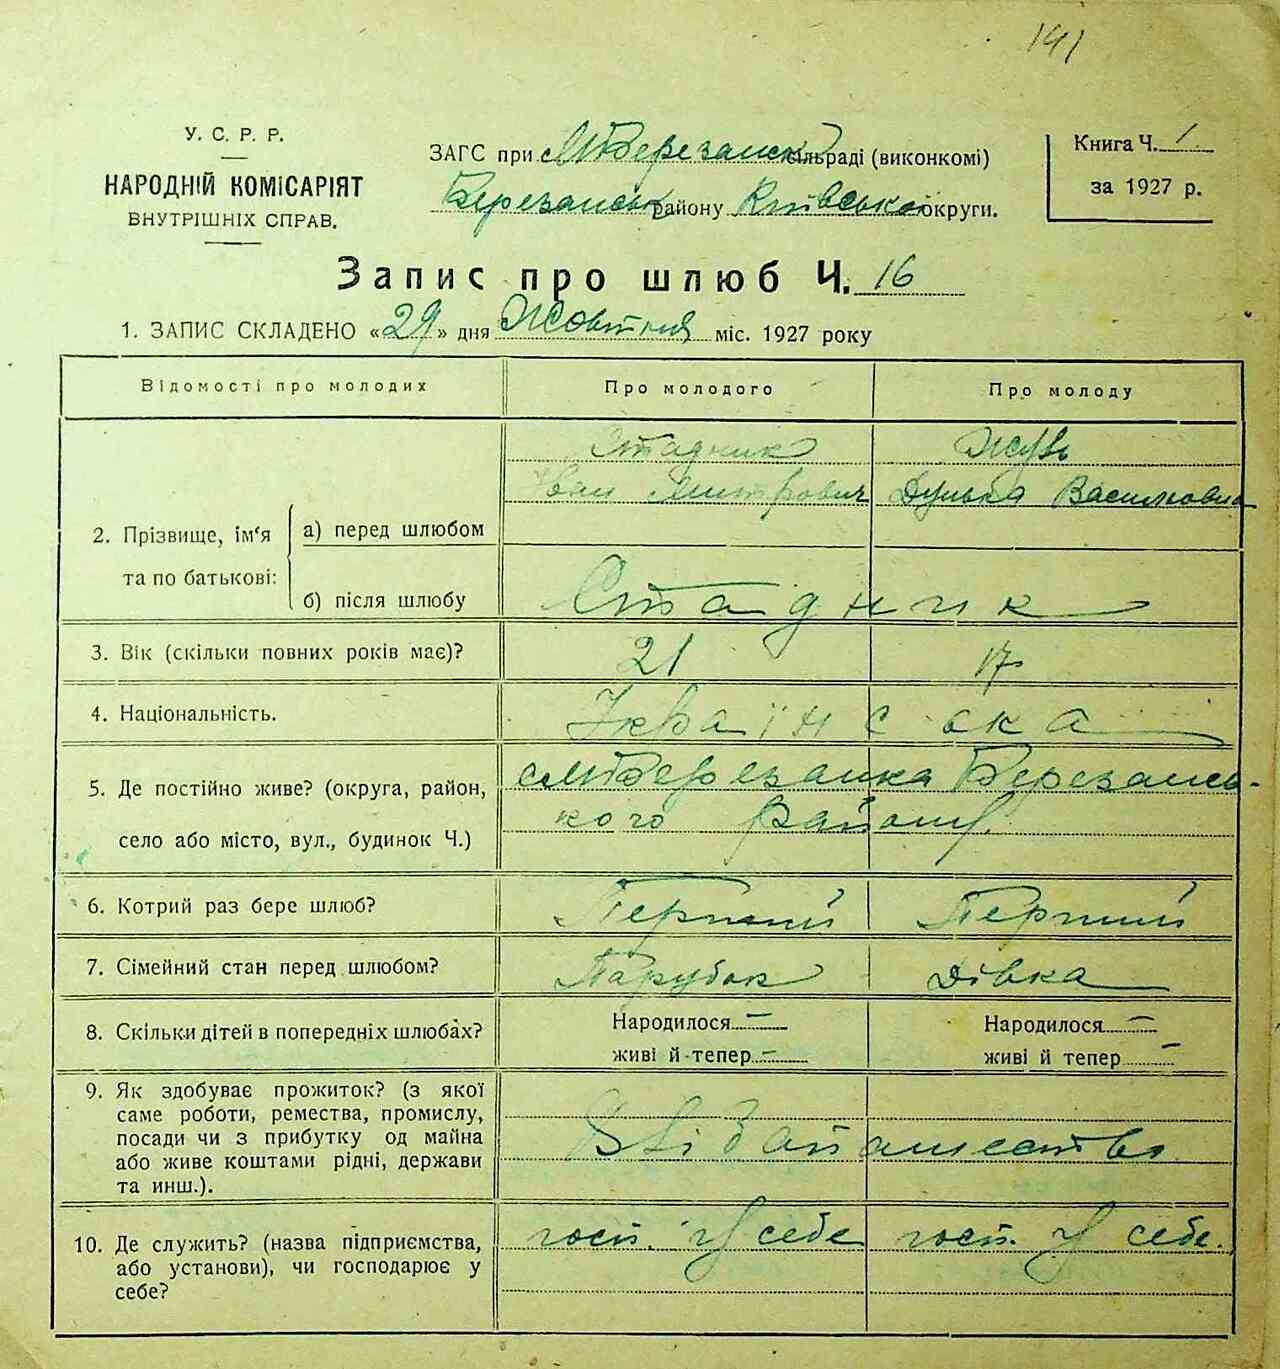 191
У. С. Р. Р.
НАРОДНІЙ КОМІСАРІЯТ
ВНУТРІШНІХ СПРАВ.
ЗАГС при с. МБерезанськ сільраді (виконкомі)
Березанськ району Київської округи.
Книга Ч. 1
за 1927 р.
Запис про шлюб Ч. 16
1. ЗАПИС СКЛАДЕНО «29» дня Жовтня міс. 1927 року
Відомості про молодих Про молодого Про молоду
2. Прізвище, ім‘я та по батькові:
а) перед шлюбом
Стадник
Іван Митрович
Василовна
б) після шлюбу
Стадник
3. Вік (скільки повних років має)? 21 17
4. Національність. Українська
5. Де постійно живе? (округа, район,
село або місто, вул., будинок Ч.)
с. МБерезанка Березансь-
кого району.
6. Котрий раз бере шлюб? Перший Перший
7. Сімейний стан перед шлюбом? Парубок Дівка
8. Скільки дітей в попередніх шлюбах?
Народилося — Народилося —
живі й тепер — живі й тепер —
9. Як здобуває прожиток? (з якої
саме роботи, ремества, промислу,
посади чи з прибутку од майна
або живе коштами рідні, держави
та инш.).
10. Де служить? (назва підприємства,
або установи), чи господарює у
себе?
госп. у себе госп. у себе.